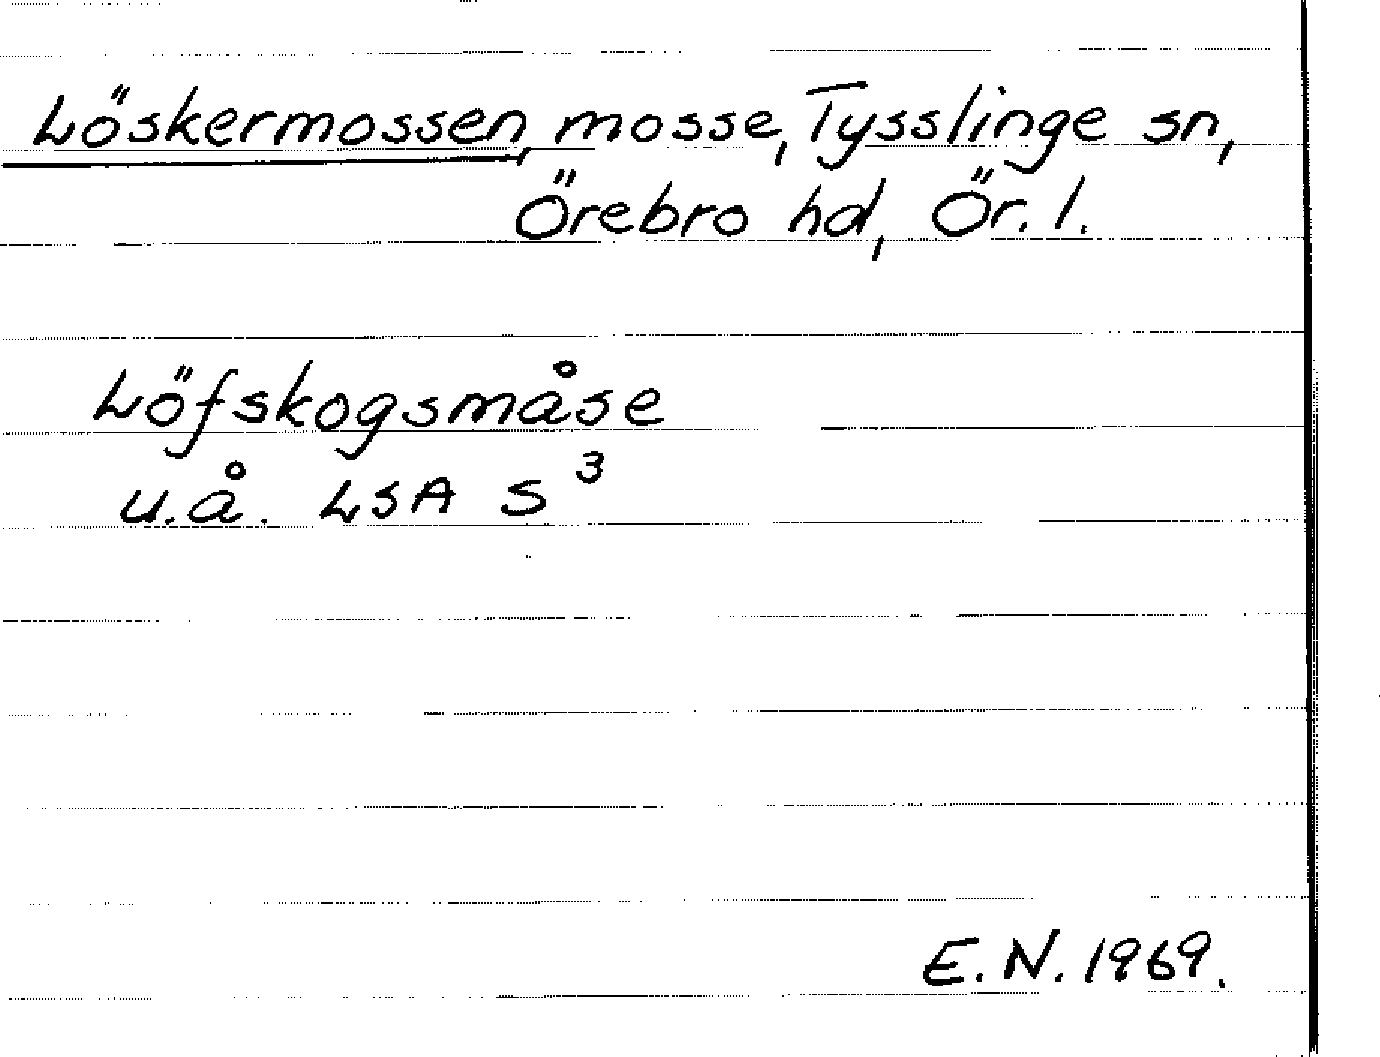 Löskermossen, mosse, Tysslinge sn,
Örebro hd, Ör. l.
Löfskogsmåse
u.å. LSA S³
E.N. 1969.